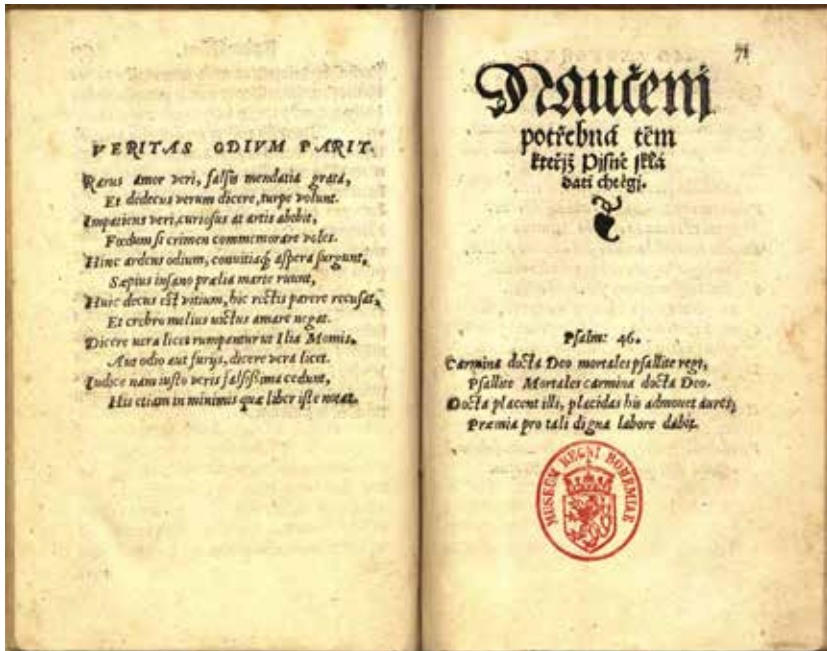 VERITAS ODIVM PARIT.
Rarus amor veri, falsis mendatia grata,
Et dedecus verum dicere, turpe volunt.
Impatiens veri, curiosus at artis abibit,
Fœdum si crimen commemorare voles.
Hinc ardens odium, convitiaq́; aspera surgunt,
Sæpius insano prælia marte ruunt,
Huic decus est vitium, hic rectis parere recusat,
Et crebro melius victus amare negat.
Dicere vera licet rumpantur ut Ilia Momis,
Aut odio aut furijs, dicere vera licet.
Iudice nam iusto veris falsißima cedunt,
His etiam in minimis quæ liber iste notat.
71
Naučenj
potřebná těm
kteřjž Pjsně sklá
dati chtěgj.
Psalm: 46.
Carmina docta Deo mortales psallite regi,
Psallite Mortales carmina docta Deo.
Docta placent illi, placidas his admovet aures,
Præmia pro tali digna labore dabit.
MUSEUM REGNI BOHEMIAE